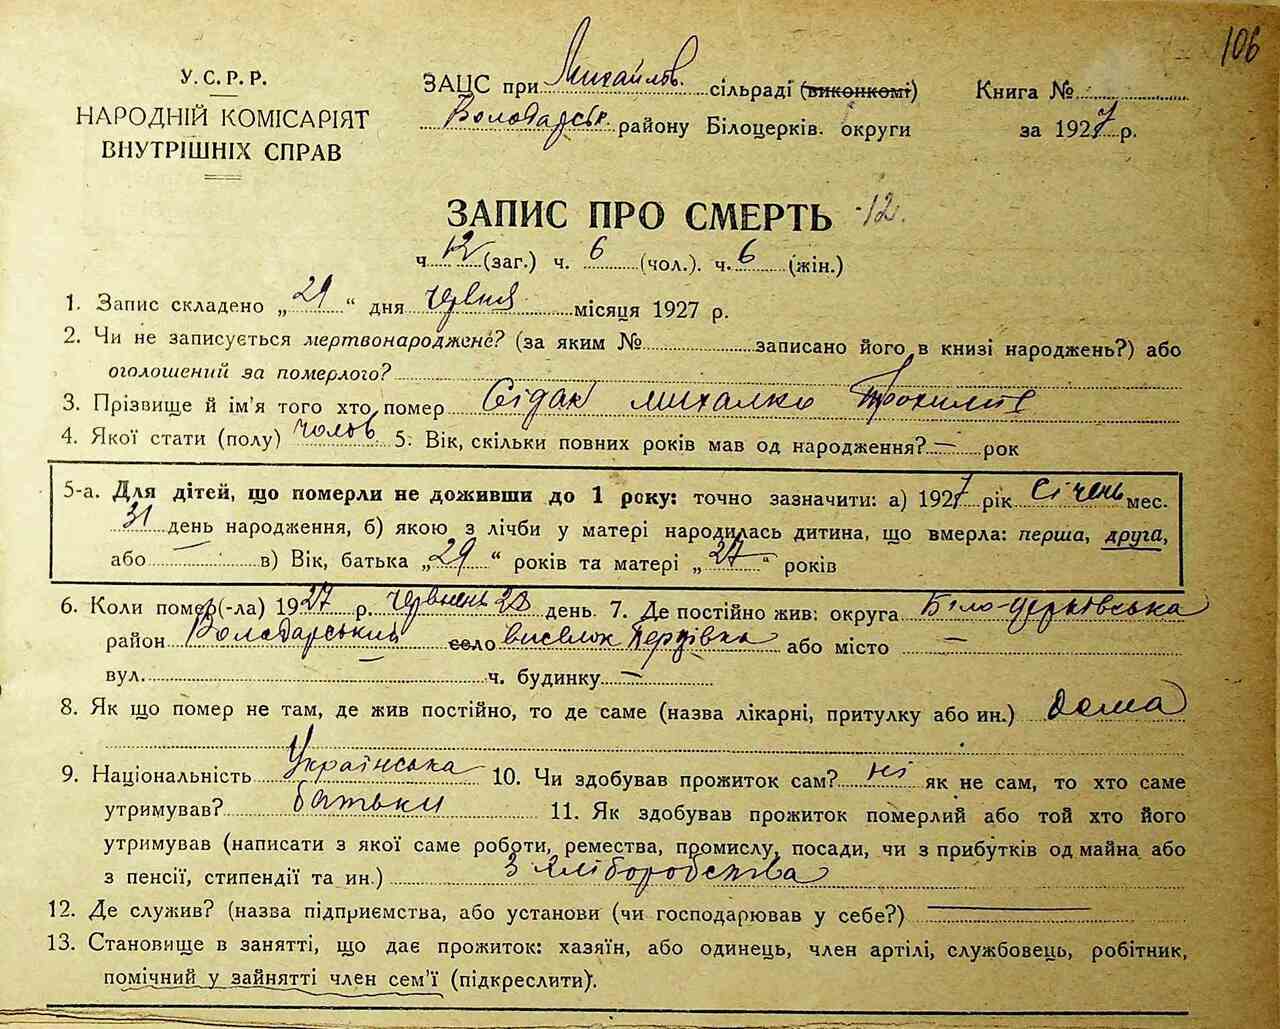 106
У.С.Р.Р.
НАРОДНІЙ КОМІСАРІЯТ
ВНУТРІШНІХ СПРАВ
ЗАЦС при Михайлов. сільраді (виконкомі)
Володарськ. району Білоцерків. округи
Книга №
за 1927 р.
ЗАПИС ПРО СМЕРТЬ 12.
ч 12 (заг.) ч. 6 (чол.). ч. 6 (жін.)
1. Запис складено „29“ дня червня місяця 1927 р.
2. Чи не записується мертвонароджене? (за яким № записано його в книзі народжень?) або
оголошений за померлого?
3. Прізвище й ім'я того хто помер Сідак Михалко
4. Якої стати (полу) чолов 5. Вік, скільки повних років мав од народження? — рок
5-а. Для дітей, що померли не доживши до 1 року: точно зазначити: а) 1927 рік Січень мес.
31 день народження, б) якою з лічби у матері народилась дитина, що вмерла: перша, друга,
або — в) Вік, батька „29“ років та матері „27“ років
6. Коли помер(-ла) 1927 р. Червень 28 день. 7. Де постійно жив: округа Біло-церковська
район Володарський село виселок або місто —
вул. — ч. будинку —
8. Як що помер не там, де жив постійно, то де саме (назва лікарні, притулку або ин.) дома
9. Національність Українська 10. Чи здобував прожиток сам? ні як не сам, то хто саме
утримував? батьки 11. Як здобував прожиток померлий або той хто його
утримував (написати з якої саме роботи, ремества, промислу, посади, чи з прибутків од майна або
з пенсії, стипендії та ин.) З хліборобства
12. Де служив? (назва підприємства, або установи (чи господарював у себе?) —
13. Становище в занятті, що дає прожиток: хазяїн, або одинець, член артілі, службовець, робітник,
помічний у зайнятті член сем'ї (підкреслити).